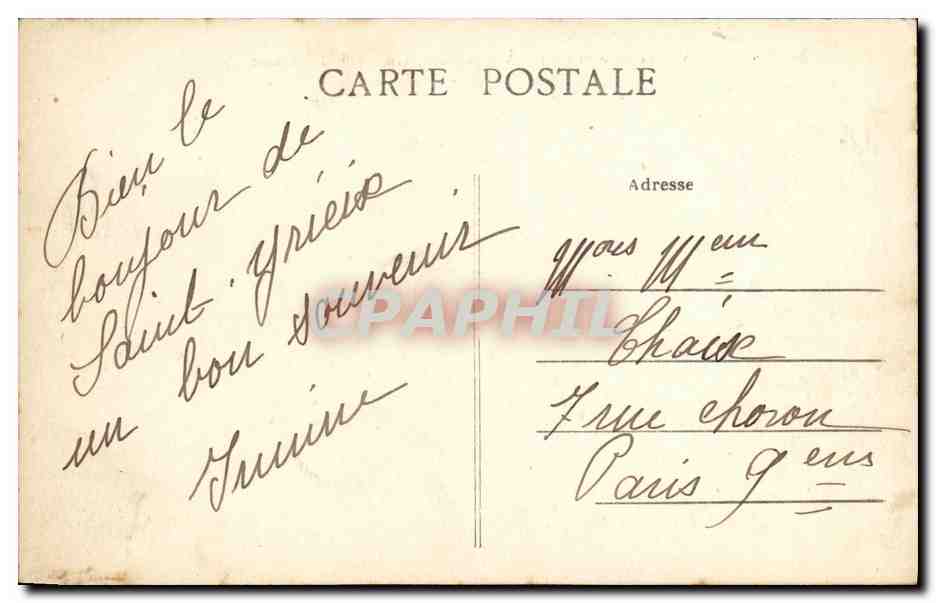 CARTE POSTALE
Bien le
bonjour de
Saint. Yrieix
un bon souvenir.
Adresse
Chaix
7 rue Choron
Paris 9 ème
CPAPHIL